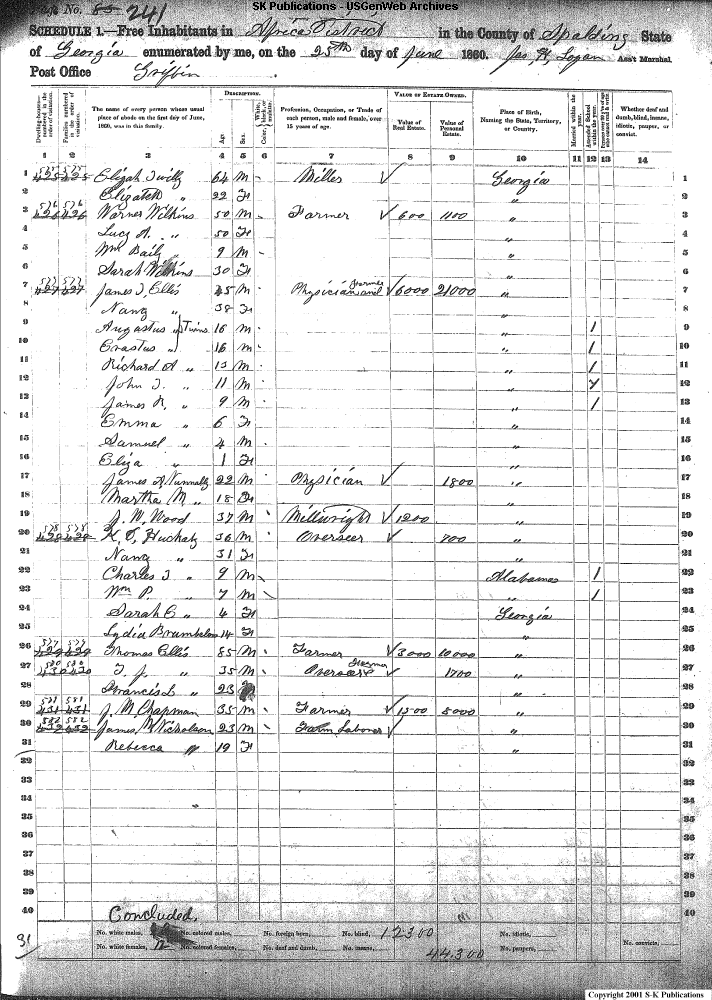 SK Publications - USGenWeb Archives
Page No. 85 241
SCHEDULE 1.—Free Inhabitants in Africa District in the County of Spalding State
of Georgia enumerated by me, on the 25th day of June 1860. Jas, H, Logan Ass't Marshal.
Post Office Griffin
Dwelling-houses—numbered in the order of visitation.
Families numbered in the order of visitation.
The name of every person whose usual place of abode on the first day of June, 1860, was in this family.
DESCRIPTION.
Age
Sex.
Color, White, black, or mulatto.
Profession, Occupation, or Trade of each person, male and female, over 15 years of age.
VALUE OF ESTATE OWNED.
Value of Real Estate.
Value of Personal Estate.
Place of Birth, Naming the State, Territory, or Country.
Married within the year.
Attended School within the year.
Whether deaf and dumb, blind, insane, idiotic, pauper, or convict.
1 2 3 4 5 6 7 8 9 10 11 12 13 14
1 425 425 Elizah 64 M Miller Georgia 1
2 Elizabeth " 22 F " 2
3 576 576 426 426 Warner Wilkins 50 M Farmer 600 1100 " 3
4 Lucy A. " 50 F " 4
5 Wm Baily 9 M " 5
6 Sarah Wilkins 30 F " 6
7 577 577 427 427 James J, Ellis 45 M Physician and Farmer 6000 21000 " 7
8 Nancy " 38 F " 8
9 Augustus " Twins 16 M " 1 9
10 Erastus " 16 M " 1 10
11 Richard A " 13 M " 1 11
12 John J. " 11 M " 1 12
13 James R, " 9 M " 1 13
14 Emma " 6 F " 14
15 Samuel " 4 M " 15
16 Eliza " 1 F " 16
17 James A, Nunnally 22 M Physician 1800 " 17
18 Martha M " 18 F " 18
19 J. W. Wood 37 M Millwright 1200 " 19
20 578 578 428 428 36 M Overseer 700 " 20
21 Nancy " 31 F " 21
22 Charles J " 9 M Alabama 1 22
23 Wm P. " 7 M " 1 23
24 Sarah E " 4 F Georgia 24
25 Lydia Brumbelow 14 F " 25
26 429 429 Thomas Ellis 85 M Farmer 3000 10000 " 26
27 580 580 430 430 T. J. " 35 M Overseer Farmer 1700 " 27
28 Francis L " 23 " 28
29 581 581 431 431 J. M. Chapman 35 M Farmer 1500 5000 " 29
30 582 582 432 432 James Nicholson 23 M Farm Laborer " 30
31 Rebecca " 19 F " 31
32 32
33 33
34 34
35 35
36 36
37 37
38 38
39 39
40 Concluded, 40
No. white males, No. colored males, No. foreign born, No. blind, 12300 No. idiotic,
31 No. white females, 12 No. colored females, No. deaf and dumb, No. insane, 44,300 No. paupers, No. convicts,
Copyright 2001 S-K Publications